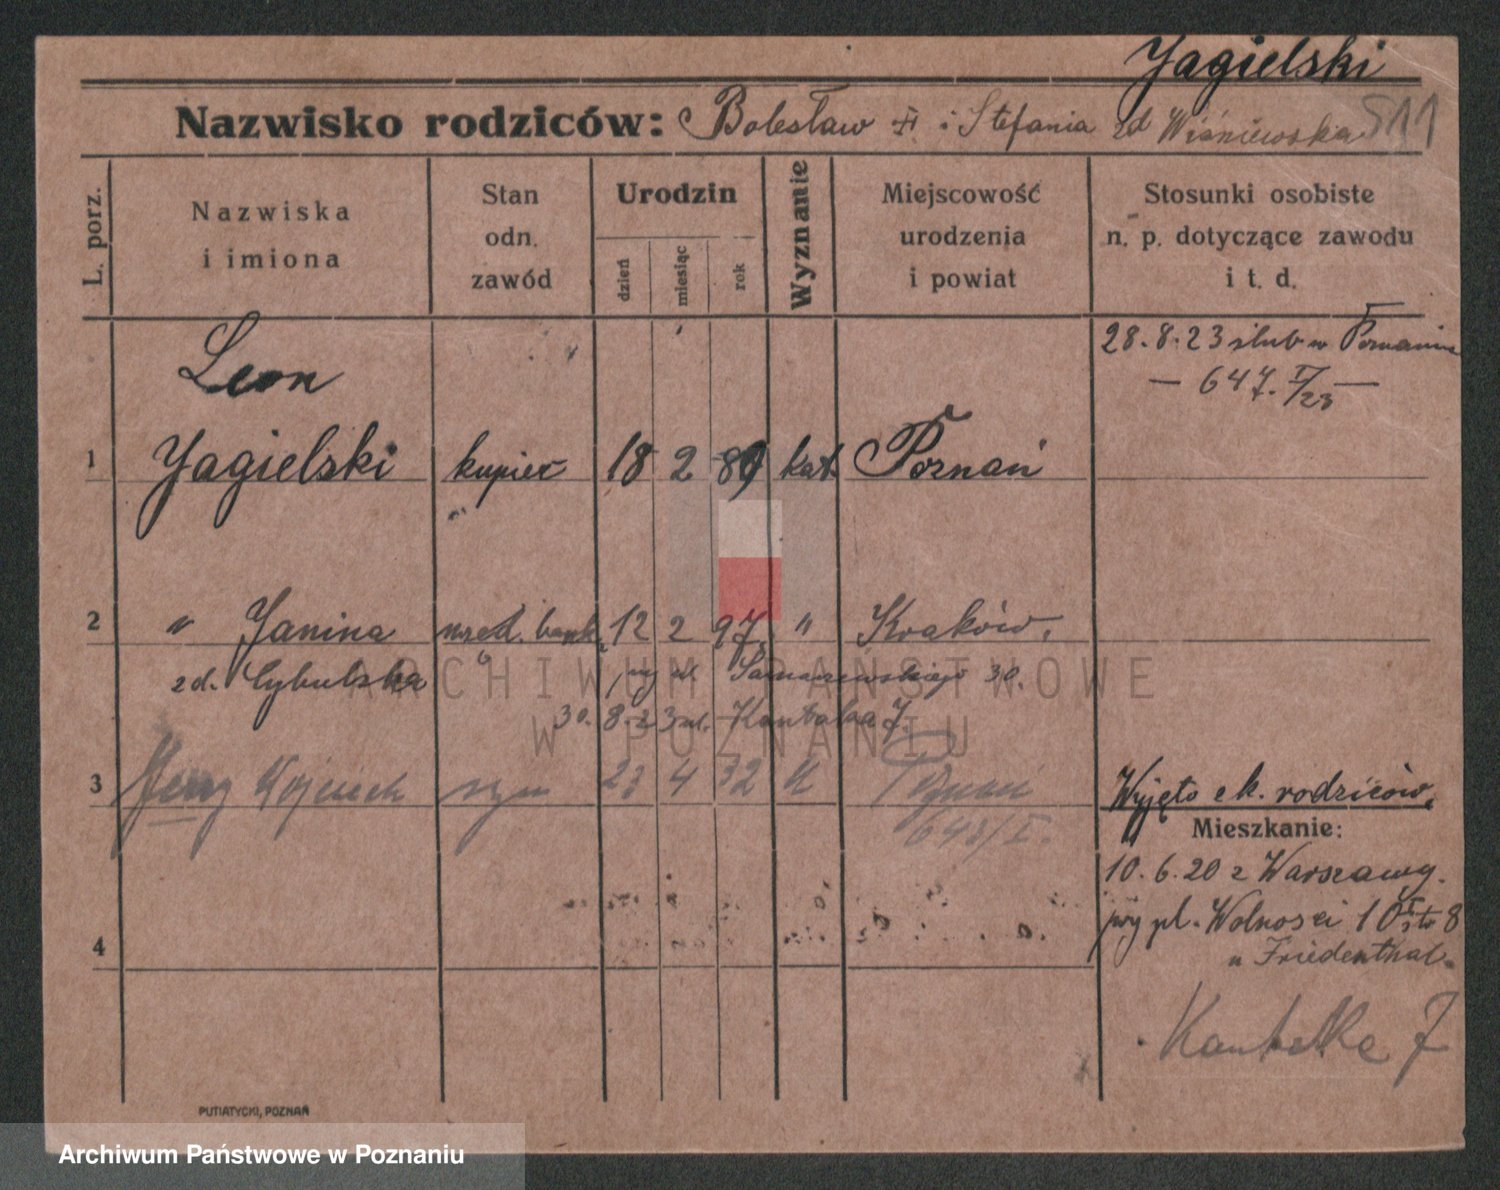 Jagielski
Nazwisko rodziców: Bolesław i Stefania zd Wiśniewska 511
L. porz.
Nazwiska
i imiona
Stan
odn.
zawód
Urodzin
dzień
miesiąc
rok
Wyznanie
Miejscowość
urodzenia
i powiat
Stosunki osobiste
n. p. dotyczące zawodu
i t. d.
28.8.23 ślub w Poznaniu
— 647. I/23 —
Leon
1 Jagielski kupiec 18 2 89 kat. Poznań
2 " Janina urzęd. bank. 12 2 97 " Kraków.
zd. Cybulska 30.
30. 8. 23 ul. Kantaka 7.
3 Jerzy Wojciech syn 23 4 32 k Poznań
648/I.
Wyjęto z k. rodziców.
Mieszkanie:
10.6.20 z Warszawy.
przy pl. Wolności 10 8
u Friedenthal.
4
Kantaka 7
PUTIATYCKI, POZNAŃ
ARCHIWUM PAŃSTWOWE
W POZNANIU
Archiwum Państwowe w Poznaniu